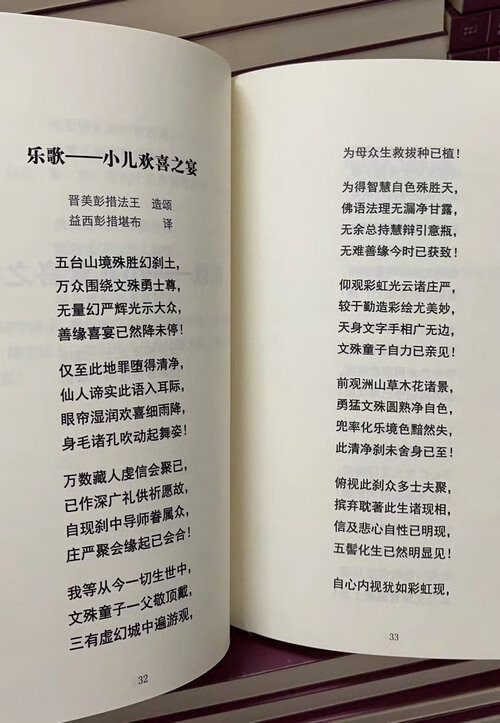 乐歌——小儿欢喜之宴
晋美彭措法王 造颂
益西彭措堪布 译
五台山境殊胜幻刹土，
万众围绕文殊勇士尊，
无量幻严辉光示大众，
善缘喜宴已然降未停！
仅至此地罪堕得清净，
仙人谛实此语入耳际，
眼帘湿润欢喜细雨降，
身毛诸孔吹动起舞姿！
万数藏人虔信会聚已，
已作深广礼供祈愿故，
自现刹中导师眷属众，
庄严聚会缘起已会合！
我等从今一切生世中，
文殊童子一父敬顶戴，
三有虚幻城中遍游观，
32
为母众生救拔种已植！
为得智慧自色殊胜天，
佛语法理无漏净甘露，
无余总持慧辩引意瓶，
无难善缘今时已获致！
仰观彩虹光云诸庄严，
较于勤造彩绘尤美妙，
天身文字手相广无边，
文殊童子自力已亲见！
前观洲山草木花诸景，
勇猛文殊圆熟净自色，
兜率化乐境色黯然失，
此清净刹未舍身已至！
俯视此刹众多士夫聚，
摈弃耽著此生诸现相，
信及悲心自性已明现，
五髻化生已然明显见！
自心内视犹如彩虹现，
33